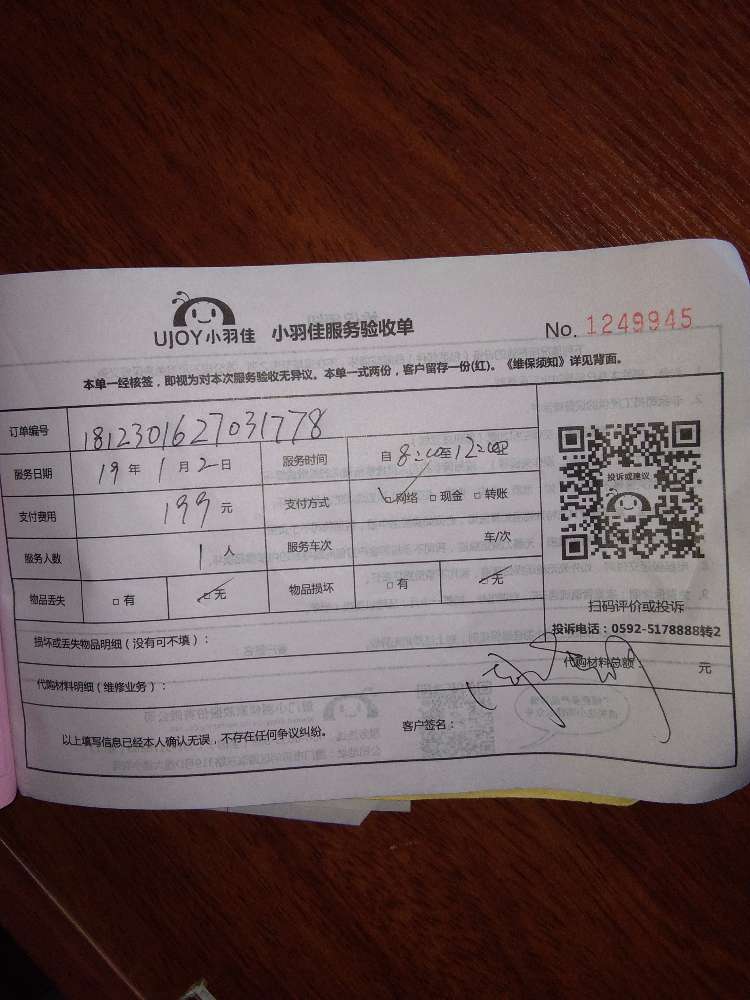 UJOY小羽佳 小羽佳服务验收单 No. 1249945
本单一经核签，即视为对本次服务验收无异议。本单一式两份，客户留存一份(红)。《维保须知》详见背面。
订单编号 1812301627031778
服务日期 19 年 1 月 2 日 服务时间 自 8:00至12:00止
支付费用 199 元 支付方式 ☑网络 □现金 □转账
服务人数 1 人 服务车次 车/次
物品丢失 □有 ☑无 物品损坏 □有 ☑无
投诉或建议
扫码评价或投诉
投诉电话：0592-5178888转2
损坏或丢失物品明细（没有可不填）：
代购材料明细（维修业务）： 代购材料总额： 元
以上填写信息已经本人确认无误，不存在任何争议纠纷。 客户签名：